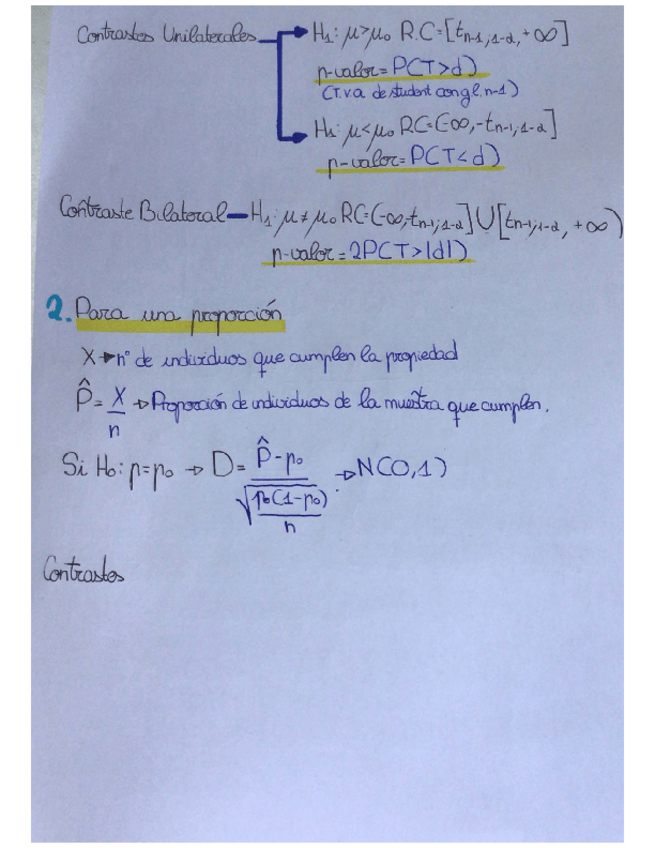 Contrastes Unilaterales → H₁: μ>μ₀ R.C=[t n-1, 1-α, +∞]
p-valor= P(T>d)
(T v.a de student con g.l. n-1)
H₁: μ<μ₀ RC=(-∞, -t n-1, 1-α]
p-valor= P(T<d)
Contraste Bilateral – H₁: μ ≠ μ₀ RC=(-∞, -t n-1, 1-α] U [t n-1, 1-α, +∞)
p-valor = 2P(T>|d|)
2. Para una proporción
X → nº de individuos que cumplen la propiedad
P̂ = X/n → Proporción de individuos de la muestra que cumplen.
Si H₀: p=p₀ → D= (P̂-p₀)/√(p₀(1-p₀)/n) → N(0,1)
Contrastes